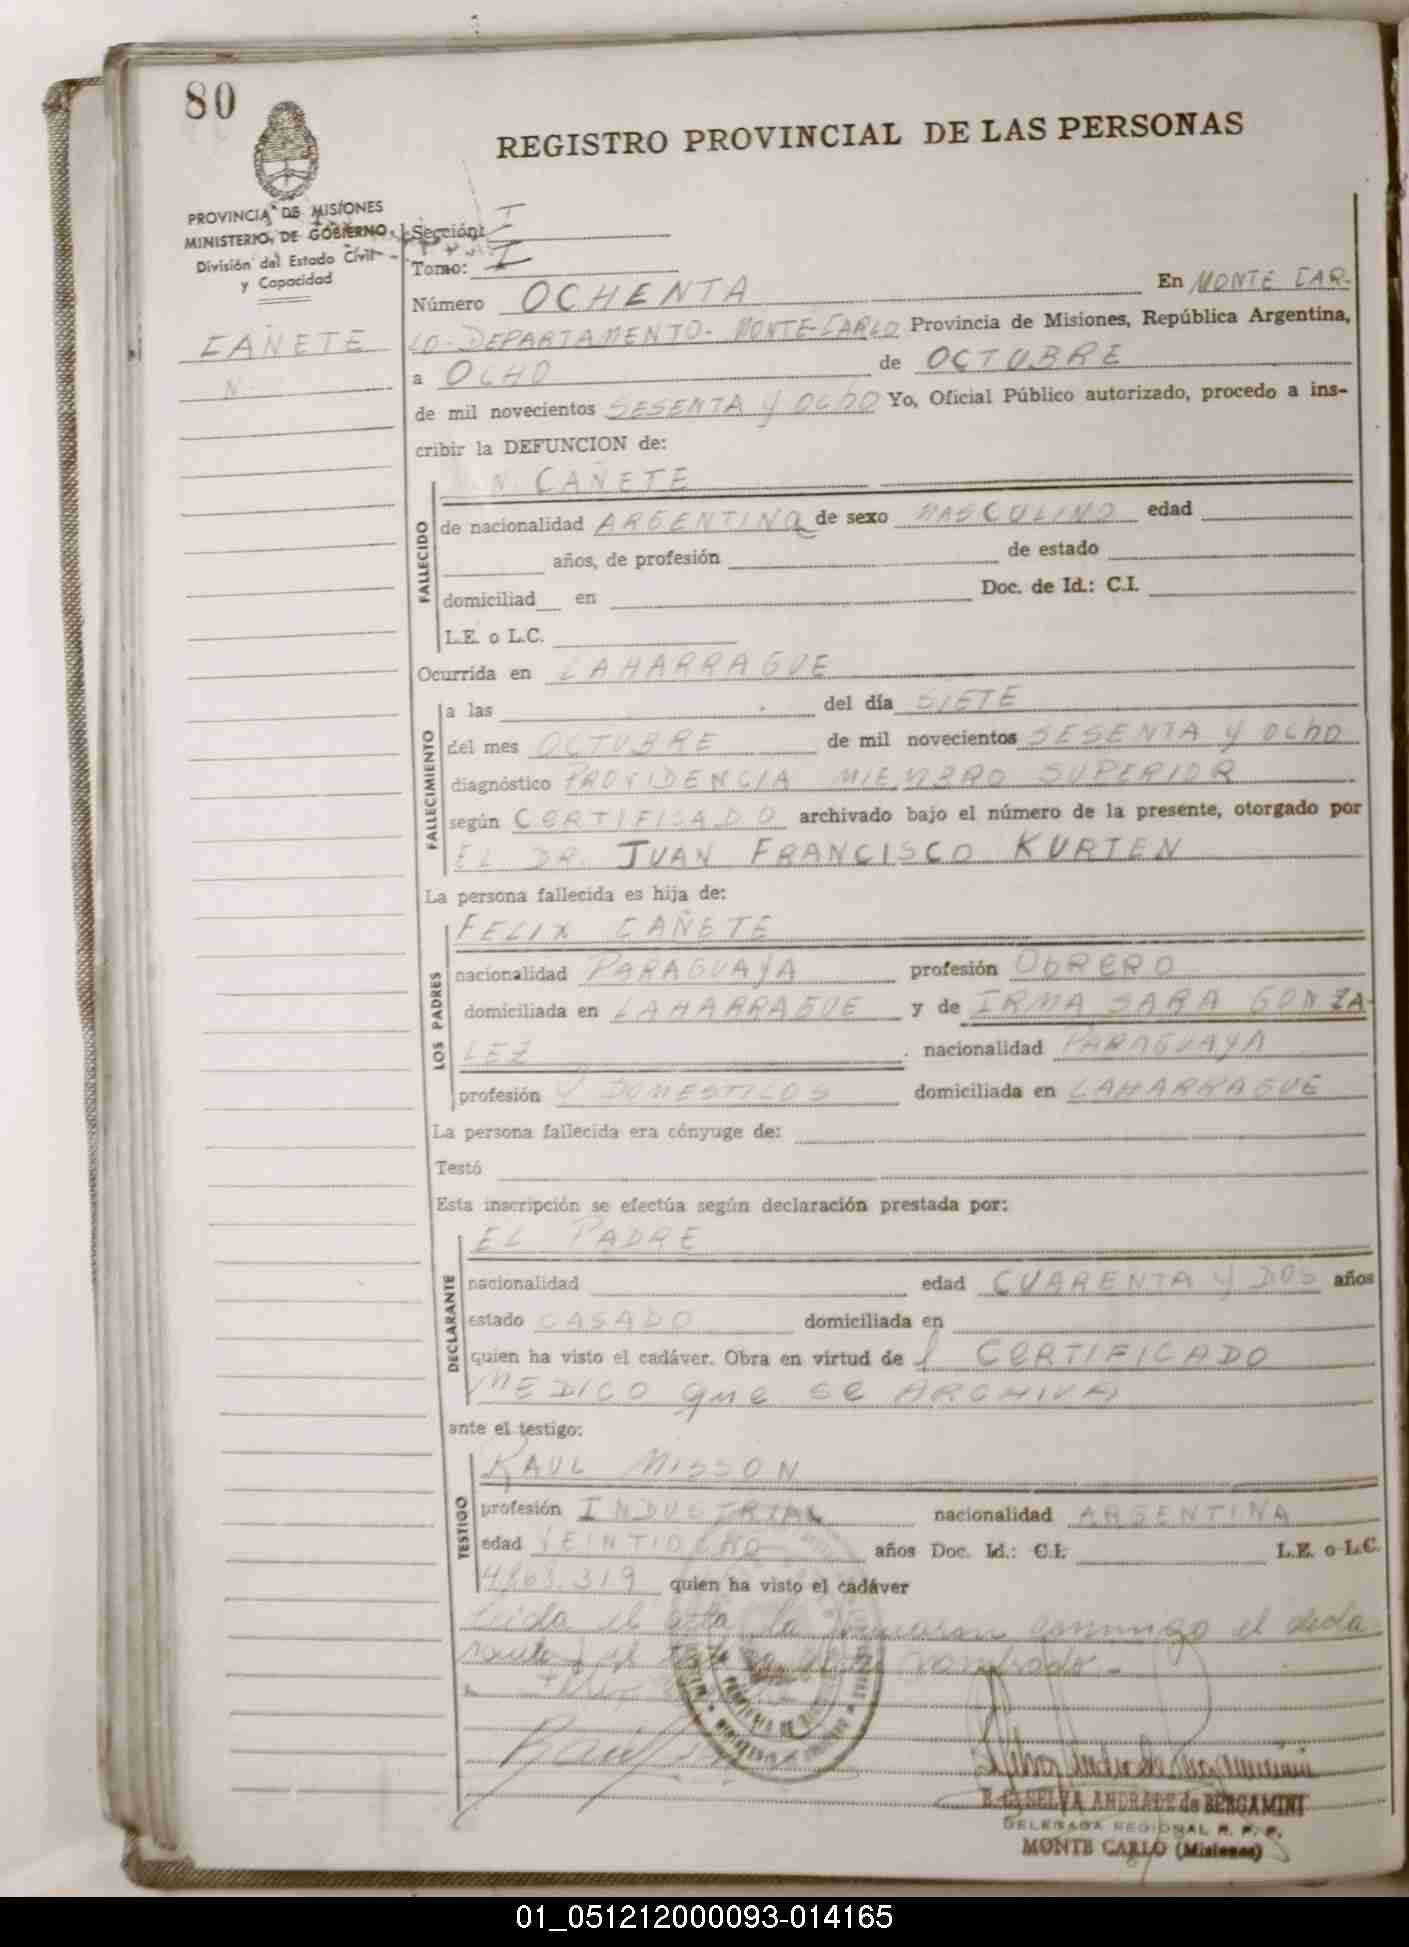 80
REGISTRO PROVINCIAL DE LAS PERSONAS
PROVINCIA DE MISIONES
MINISTERIO DE GOBIERNO
División del Estado Civil
y Capacidad
Sección: I
Tomo: I
Número OCHENTA En MONTE CAR-
CAÑETE
N.
LO-DEPARTAMENTO- MONTE-CARLO Provincia de Misiones, República Argentina,
a OCHO de OCTUBRE
de mil novecientos SESENTA y OchO Yo, Oficial Público autorizado, procedo a ins-
cribir la DEFUNCION de:
N CAÑETE
FALLECIDO
de nacionalidad ARGENTINA de sexo MASCULINO edad
años, de profesión de estado
domiciliad en Doc. de Id.: C.I.
L.E. o L.C.
Ocurrida en LAHARRAGUE
FALLECIMIENTO
a las del día SIETE
del mes OCTUBRE de mil novecientos SESENTA y OchO
diagnóstico PROVIDENCIA MIEMBRO SUPERIOR
según CERTIFICADO archivado bajo el número de la presente, otorgado por
EL DR. JUAN FRANCISCO KURTEN
La persona fallecida es hija de:
LOS PADRES
FELIX CAÑETE
nacionalidad PARAGUAYA profesión ObRERO
domiciliada en LAHARRAGUE y de IRMA SARA GONZA-
LEZ nacionalidad PARAGUAYA
profesión DOMESTICOS domiciliada en LAHARRAGUE
La persona fallecida era cónyuge de:
Testó
Esta inscripción se efectúa según declaración prestada por:
DECLARANTE
EL PADRE
nacionalidad edad CUARENTA y DOS años
estado CASADO domiciliada en
quien ha visto el cadáver. Obra en virtud de 1 CERTIFICADO
MEDICO que se ARCHIVA
ante el testigo:
TESTIGO
RAUL MISSON
profesión INDUSTRIAL nacionalidad ARGENTINA
edad VEINTIOCHO años Doc. Id.: C.I. L.E. o L.C.
319 quien ha visto el cadáver
Leida el acta la firmaron conmigo el decla
rante y el nombrado.-
SELVA ANDRADE de BERGAMINI
DELEGADA REGIONAL R. P. P.
MONTE CARLO (Misiones)
01_051212000093-014165